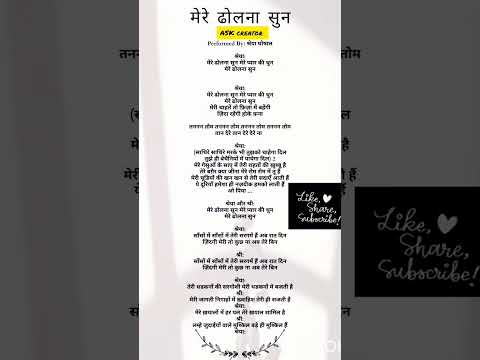 मेरे ढोलना सुन
ASK CREATOR
Performed By: श्रेया घोषाल
श्रेया:
मेरे ढोलना सुन मेरे प्यार की धुन
मेरे ढोलना सुन
श्रेया:
मेरे ढोलना सुन मेरे प्यार की धुन
मेरे ढोलना सुन
मेरी चाहतें तो फ़िज़ा में बहेंगी
ज़िंदा रहेंगी होके फ़ना
तननन तोम तननन तोम तननन तोम
तान देरे तान देरे देरे ना
श्रेया:
(साथिरे साथिरे मरके भी तुझको चाहेगा दिल
तुझे ही बेचैनियों में पायेगा दिल) 2
मेरे गेसुओं के साए में तेरी राहतों की खुश्बू है
तेरे बगैर क्या जीना मेरे रोम रोम में तू है
मेरी चूड़ियों की खन खन से तेरी सदाएँ आती हैं
ये दूरियाँ हमेशा ही नज़दीक हमको लाती हैं
ओ पिया ...
श्रेया और श्री:
मेरे ढोलना सुन मेरे प्यार की धुन
मेरे ढोलना सुन
श्रेया:
साँसों में साँसों में तेरी सरगमें हैं अब रात दिन
ज़िंदगी मेरी तो कुछ ना अब तेरे बिन
श्री:
साँसों में साँसों में तेरी सरगमें हैं अब रात दिन
ज़िंदगी मेरी तो कुछ ना अब तेरे बिन
श्रेया:
तेरी धडकनों की सरगोशी मेरी धडकनों में बजती है
श्री:
मेरी जागती निगाहों में ख़्वाहिश तेरी ही सजती है
श्रेया:
मेरे ख़यालों में हर पल तेरे ख़याल शामिल है
श्री:
लम्हे जुदाईयों वाले मुश्किल बड़े ही मुश्किल हैं
श्रेया:
Like,
Share,
Subscribe!